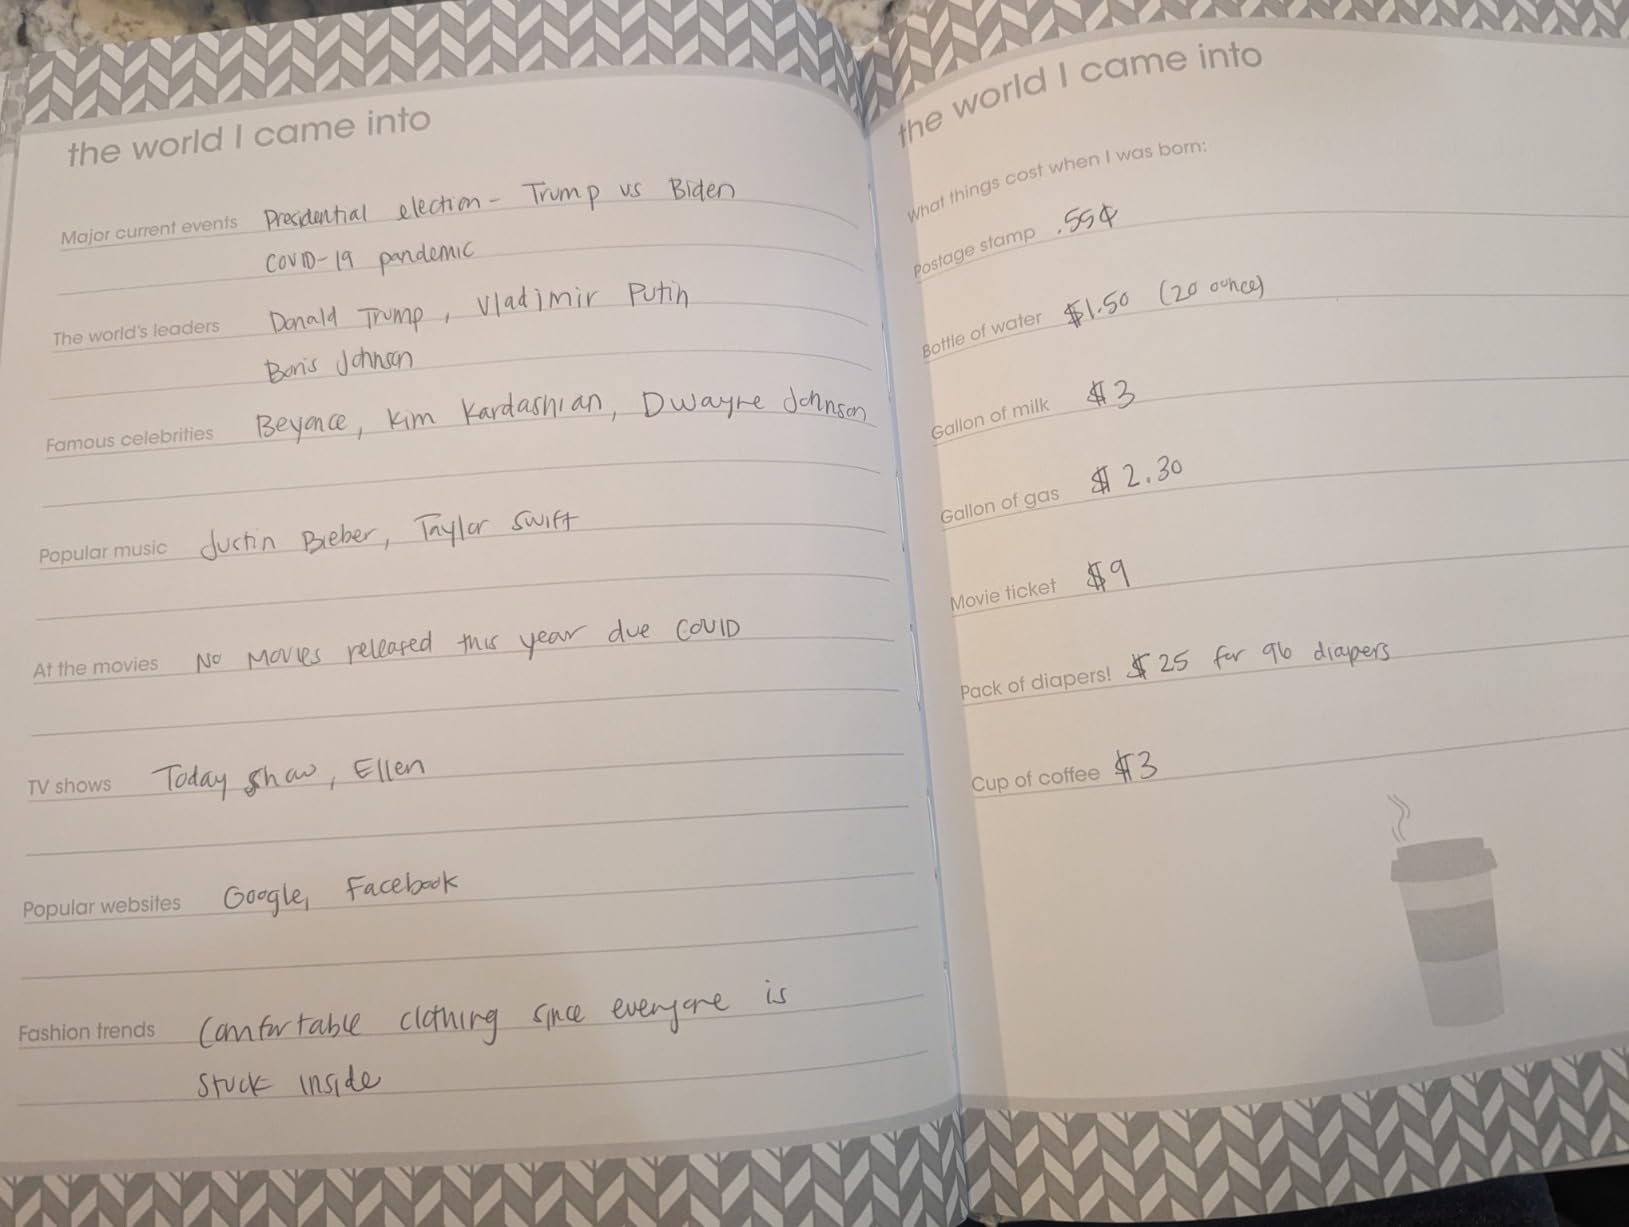 the world I came into
Major current events Presidential election - Trump vs Biden
COVID-19 pandemic
The world's leaders Donald Trump, Vladimir Putin
Boris Johnson
Famous celebrities Beyonce, Kim Kardashian, Dwayne Johnson
Popular music Justin Bieber, Taylor Swift
At the movies No movies released this year due COVID
TV shows Today show, Ellen
Popular websites Google, Facebook
Fashion trends Comfortable clothing since everyone is
stuck inside
the world I came into
What things cost when I was born:
Postage stamp .55¢
Bottle of water $1.50 (20 ounce)
Gallon of milk $3
Gallon of gas $2.30
Movie ticket $9
Pack of diapers! $25 for 96 diapers
Cup of coffee $3